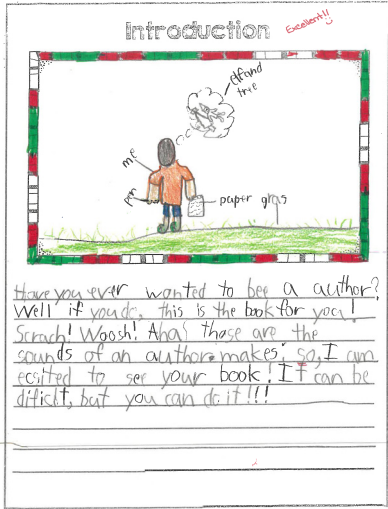 Introduction
Excellent!!
elf and
tree
me
pen
paper gras
Have you ever wonted to bee a author?
Well if you do, this is the book for you!
Scrach! Woosh! Aha! those are the
sounds of an author makes; so, I am
ecsited to see your book! It can be
dificlt, but you can do it!!!